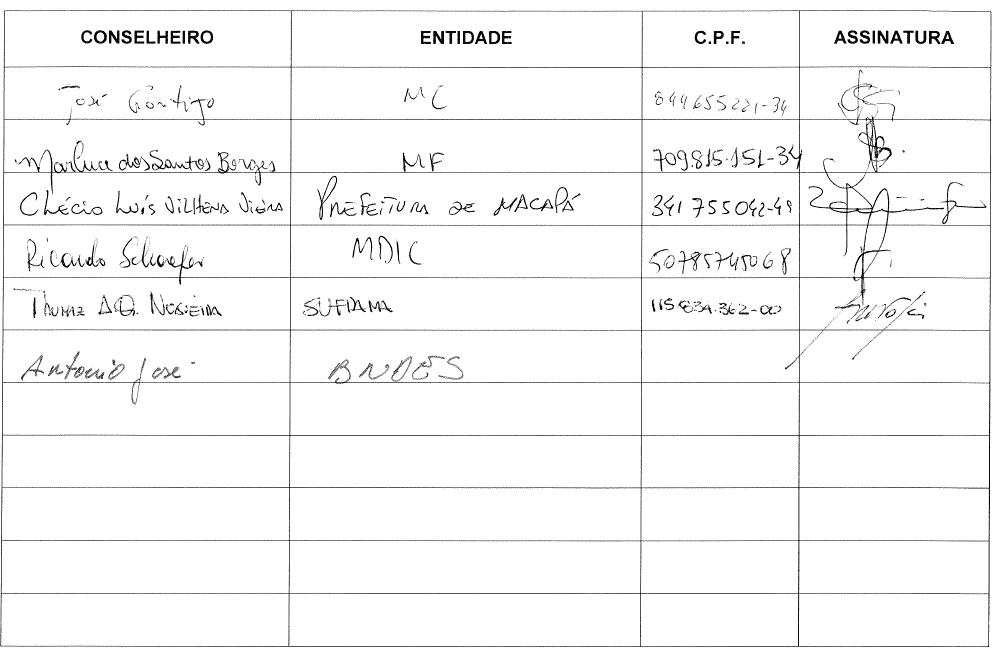 CONSELHEIRO ENTIDADE C.P.F. ASSINATURA
José Gontijo MC 844655221-34
Marluce dos Santos Borges MF 709.815.151-34
Clécio Luís Vilhena Vieira PREFEITURA DE MACAPÁ 341755042-49
Ricardo Schaefer MDIC 50785745068
Thomaz A.Q. Nogueira SUFRAMA 115.834.362-00
Antonio José BNDES